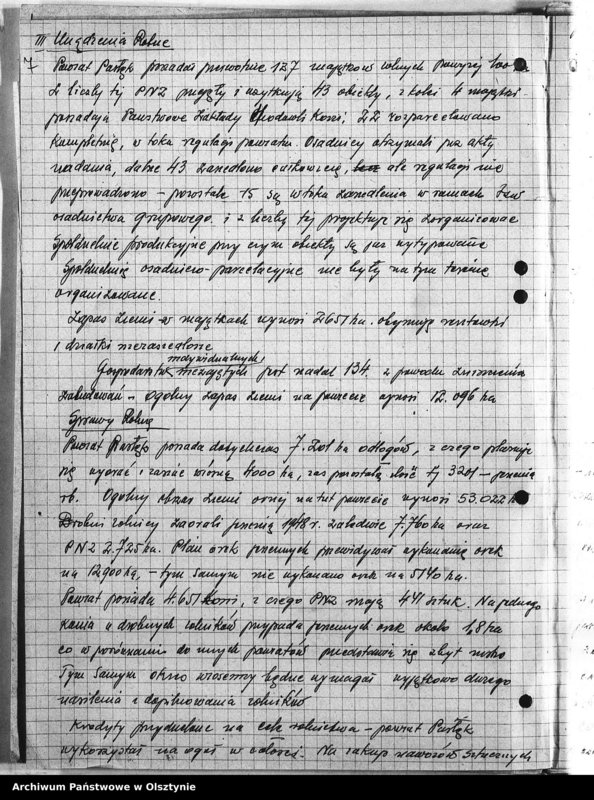 III Urządzenia Rolne
7
Powiat Pasłęk posiadał pierwotnie 127 majątków rolnych powyżej 100 ha
Z liczby tej PNZ przejęły i użytkują 43 obiekty, z kolei 4 majątki
posiadają Państwowe Zakłady Chodowli Koni. 22 rozparcelowano
kompletnie, w toku regulacji powiatu. Osadnicy otrzymali już akty
nadania, dalsze 43 zasiedlono całkowicie, ale regulacji nie
przeprowadzono – pozostałe 15 są w toku zasiedlenia w ramach tzw
osadnictwa grupowego. i z liczby tej projektuje się zorganizować
Spółdzielnie produkcyjne przy czym obiekty są już wytypowane
Spółdzielnie osadniczo-parcelacyjne nie były na tym terenie
organizowane.
Zapas ziemi w majątkach wynosi 2651 ha. obejmują resztówki
i działki niezasiedlone
indywidualnych
Gospodarstw niezajętych jest nadal 134. z powodu zniszczenia
zabudowań – ogólny zapas ziemi na powiecie wynosi 12.096 ha
Sprawy Rolne
Powiat Pasłęk posiada dotychczas 7.201 ha odłogów, z czego planuje
się wyorać i zasiać wiosną 4000 ha, zaś pozostałą ilość tj 3201 – jesienią
rb. Ogólny obszar ziemi ornej na tut powiecie wynosi 53.022 h
Drobni rolnicy zaorali jesienią 1948 r. zaledwie 7.760 ha oraz
PNZ 2.725 ha. Plan orek jesiennych przewidywał wykonanie orek
na 12900 ha, – tym samym nie wykonano orek na 5140 ha.
Powiat posiada 4.651 koni, z czego PNZ mają 441 sztuk. Na jednego
konia u drobnych rolników przypada jesiennych orek około 1,8 ha
co w porównaniu do innych powiatów przedstawia się zbyt nisko
Tym samym okres wiosenny będzie wymagał wyjątkowo dużego
nasilenia i dopilnowania rolników
Kredyty przydzielone na cele rolnictwa – powiat Pasłęk
wykorzystał na ogół w całości. Na zakup nawozów sztucznych
Archiwum Państwowe w Olsztynie